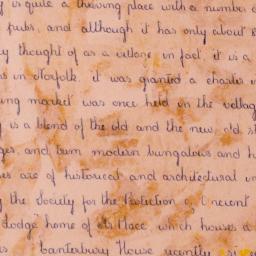 is quite a thriving place with a number
pubs, and although it has only about
thought of as a village in fact, it is a
in Norfolk. it was granted a charter
market was once held in the village
is a blend of the old and the new, old
and trim modern bungalows and
are of historical and architectural
the Society for the Protection of Ancient
dodge" home of Place which houses a
"Canterbury House recently